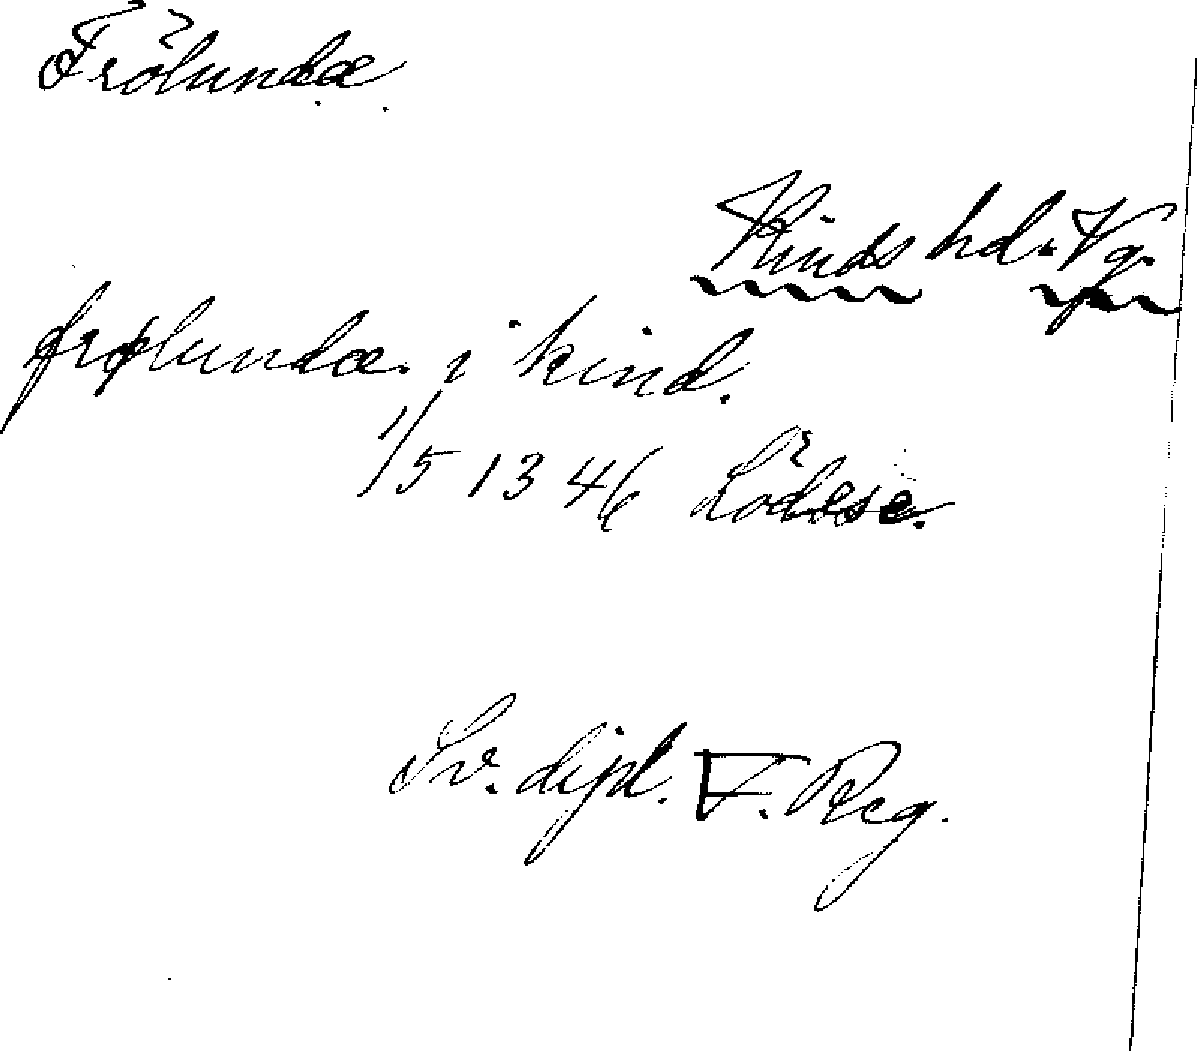 Frölunda
Kinds hd. Vg.
frølunda i kind.
1/5 1346 Lödese.
Sv. dipl. V. Reg.